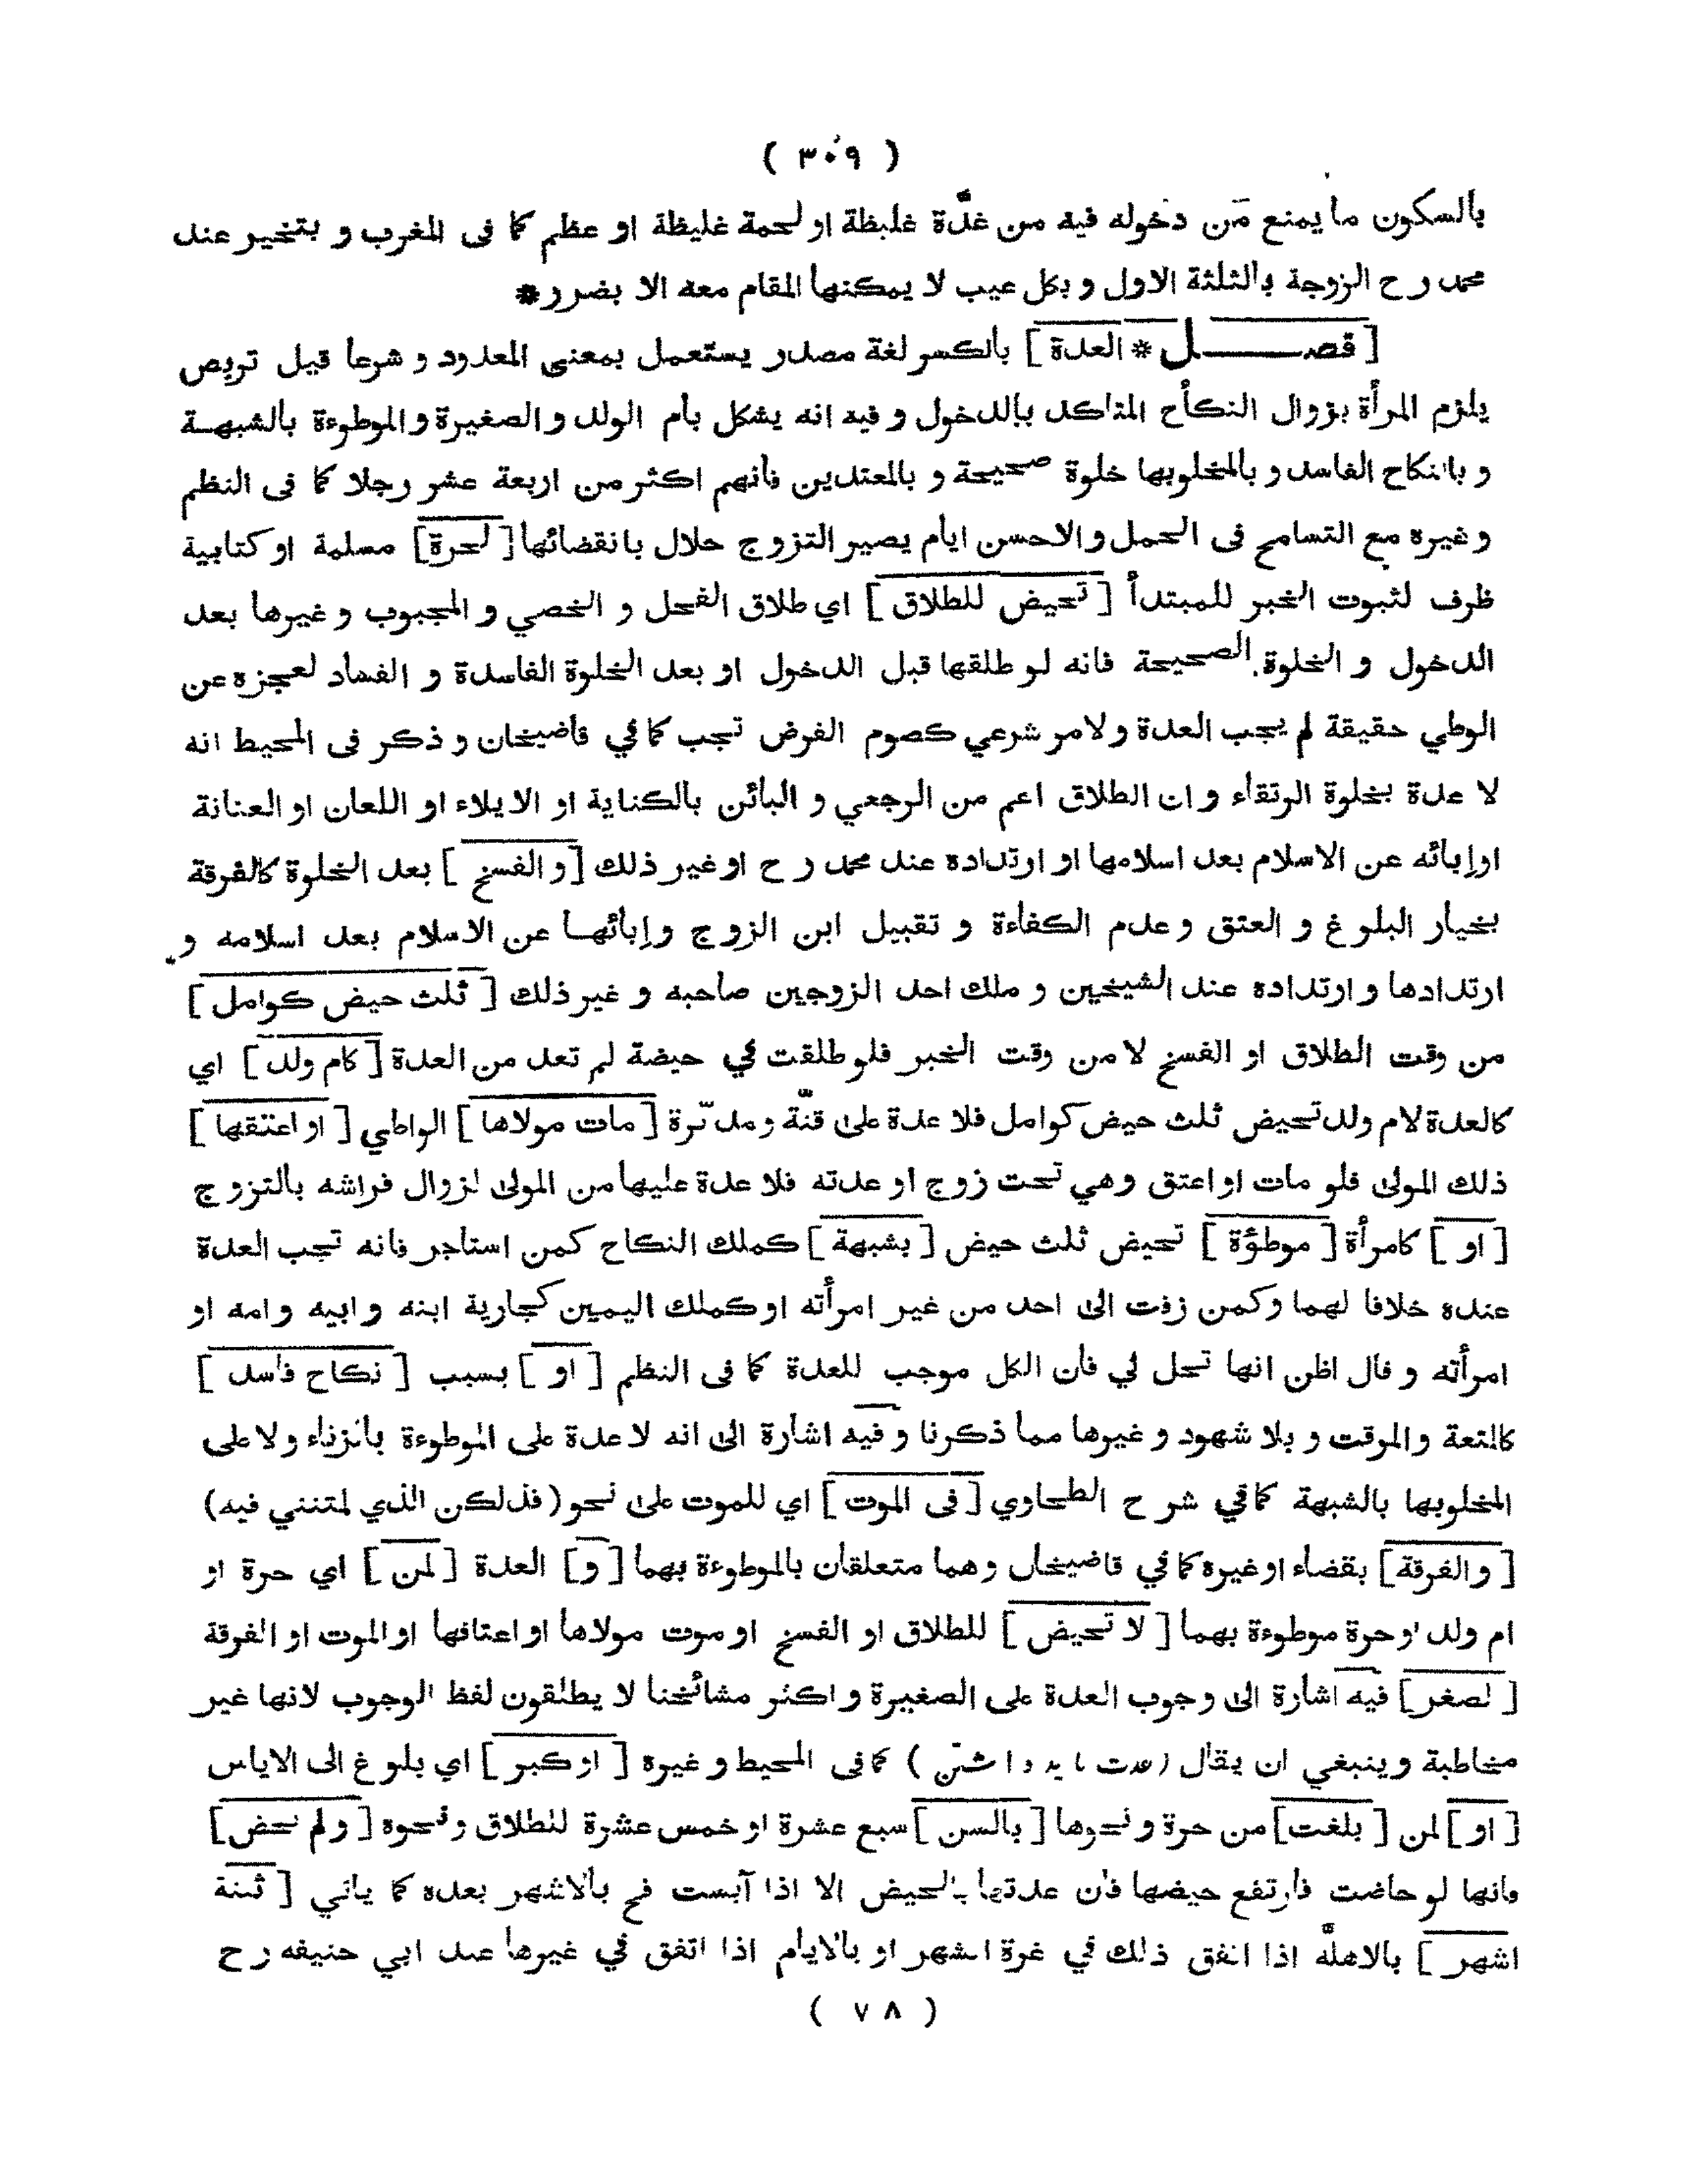 ( ٣٠٩ )
بالسكون ما يمنع من دخوله فيه من غدّة غليظة او لحمة غليظة او عظم كما فى المغرب و بتخير عند
محمد ر ح الزوجة بالثلثة الاول و بكل عيب لا يمكنها المقام معه الا بضرر*
[ فصـــل * العدة ] بالكسر لغة مصدر يستعمل بمعنى المعدود و شرعا قيل تربص
يلزم المرأة بزوال النكاح المتاكد بالدخول و فيه انه يشكل بام الولد و الصغيرة و الموطوءة بالشبهـة
و بالنكاح الفاسد و بالمخلوبها خلوة صحيحة و بالمعتدين فانهم اكثر من اربعة عشر رجلا كما فى النظم
و غيره مع التسامح فى الحمل و الاحسن ايام يصير التزوج حلال بانقضائها [ لحرة ] مسلمة او كتابية
ظرف لثبوت الخبر للمبتدأ [ تحيض للطلاق ] اي طلاق الفحل و الخصي و المجبوب و غيرها بعد
الدخول و الخلوة الصحيحة فانه لو طلقها قبل الدخول او بعد الخلوة الفاسدة و الفساد لعجزه عن
الوطي حقيقة لم يجب العدة و لامر شرعي كصوم الفرض تجب كما في قاضيخان و ذكر فى المحيط انه
لا عدة بخلوة الرتقاء و ان الطلاق اعم من الرجعي و البائن بالكناية او الايلاء او اللعان او العنانة
او إبائه عن الاسلام بعد اسلامها او ارتداده عند محمد ر ح او غير ذلك [ و الفسخ ] بعد الخلوة كالفرقة
بخيار البلوغ و العتق و عدم الكفاءة و تقبيل ابن الزوج و إبائهـا عن الاسلام بعد اسلامه و
ارتدادها و ارتداده عند الشيخين و ملك احد الزوجين صاحبه و غير ذلك [ ثلث حيض كوامل ]
من وقت الطلاق او الفسخ لا من وقت الخبر فلو طلقت في حيضة لم تعد من العدة [ كام ولد ] اي
كالعدة لام ولد تحيض ثلث حيض كوامل فلا عدة على قنّة و مدبّرة [ مات مولاها ] الواطي [ او اعتقها ]
ذلك المولى فلو مات او اعتق و هي تحت زوج او عدته فلا عدة عليها من المولى لزوال فراشه بالتزوج
[ او ] كامرأة [ موطؤة ] تحيض ثلث حيض [ بشبهة ] كملك النكاح كمن استاجر فانه تجب العدة
عنده خلافا لهما و كمن زفت الى احد من غير امرأته او كملك اليمين كجارية ابنه و ابيه و امه او
امرأته و قال اظن انها تحل لي فان الكل موجب للعدة كما فى النظم [ او ] بسبب [ نكاح فاسد ]
كالمتعة و الموقت و بلا شهود و غيرها مما ذكرنا و فيه اشارة الى انه لا عدة على الموطوءة بالزناء و لا على
المخلوبها بالشبهة كما في شرح الطحاوي [ فى الموت ] اي للموت على نحو ( فذلكن الذي لمتنني فيه )
[ و الفرقة ] بقضاء او غيره كما في قاضيخان و هما متعلقان بالموطوءة بهما [ و ] العدة [ لمن ] اي حرة او
ام ولد او حرة موطوءة بهما [ لا تحيض ] للطلاق او الفسخ او موت مولاها او اعتاقها او الموت او الفرقة
[ لصغر ] فيه اشارة الى وجوب العدة على الصغيرة و اكثر مشائخنا لا يطلقون لفظ الوجوب لانها غير
مخاطبة و ينبغي ان يقال ( عدت بايد داشتن ) كما فى المحيط و غيره [ او كبر ] اي بلوغ الى الاياس
[ او ] لمن [ بلغت ] من حرة و نحوها [ بالسن ] سبع عشرة او خمس عشرة للطلاق و نحوه [ و لم تحض ]
فانها لو حاضت فارتفع حيضها فان عدتها بالحيض الا اذا آيست فح بالاشهر بعده كما ياتي [ ثلثة
اشهر ] بالاهلّة اذا اتفق ذلك في غرة الشهر او بالايام اذا اتفق في غيرها عند ابي حنيفه ر ح
( ٧٨ )